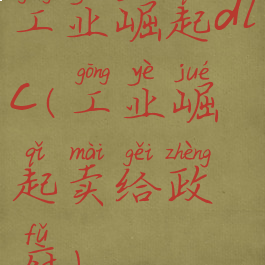 工业崛起dl
gōng yè jué
c(工业崛
qǐ mài gěi zhèng
起卖给政
fǔ
府)